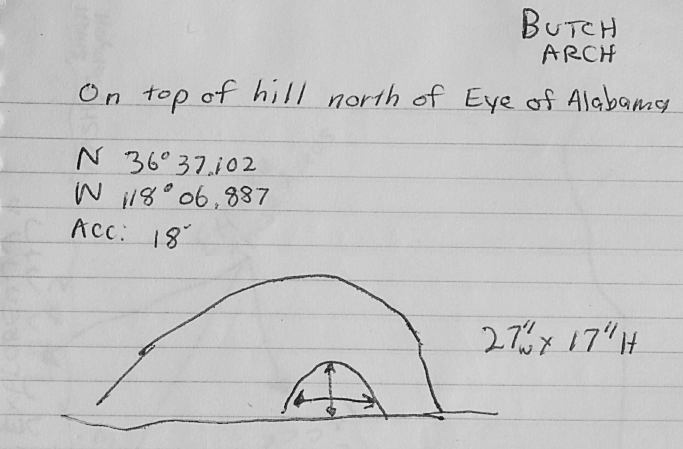 BUTCH
ARCH
On top of hill north of Eye of Alabama
N 36° 37.102
W 118° 06.887
ACC: 18'
27"W x 17"H